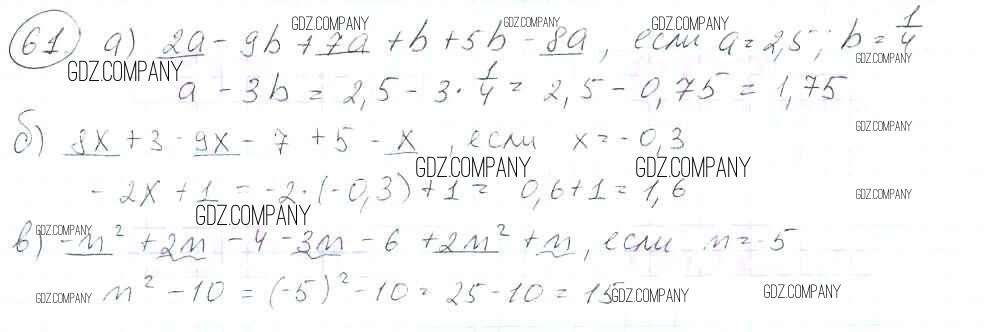 61. а) 2a - 9b + 7a + b + 5b - 8a, если a = 2,5; b = 1/4
a - 3b = 2,5 - 3 · 1/4 = 2,5 - 0,75 = 1,75
б) 8x + 3 - 9x - 7 + 5 - x, если x = -0,3
- 2x + 1 = -2 · (-0,3) + 1 = 0,6 + 1 = 1,6
в) -n² + 2n - 4 - 3n - 6 + 2n² + n, если n = -5
n² - 10 = (-5)² - 10 = 25 - 10 = 15
GDZ.COMPANY
GDZ.COMPANY
GDZ.COMPANY
GDZ.COMPANY
GDZ.COMPANY
GDZ.COMPANY
GDZ.COMPANY
GDZ.COMPANY
GDZ.COMPANY
GDZ.COMPANY
GDZ.COMPANY
GDZ.COMPANY
GDZ.COMPANY
GDZ.COMPANY